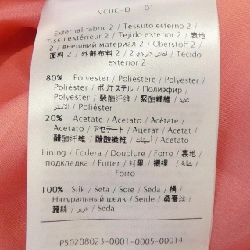 External fabric 2 / Tessuto esterno 2 /
Tissu extérieur 2 / Tejido exterior 2 / 表地
2 / Внешний материал 2 / Oberstoff 2 /
面料 2 / 外側布料 2 / Tecido
externo 2
80% Polyester / Poliestere / Polyester /
Poliéster / ポリエステル / Полиэфир
/ Polyester / 聚酯纤维 / 聚酯纖維 /
Poliéster
20% Acetate / Acetato / Acetate /
Acetato / アセテート / Ацетат / Acetat
/ 醋酯纤维 / 醋酸纖維 / Acetato
Lining / Fodera / Doublure / Forro / 裏地
/ подкладка / Futter / 里料 / 裡襯 /
Forro
100% Silk / Seta / Soie / Seda / 絹 /
Натуральный шелк / Seide / 桑蚕丝 /
/ Seda